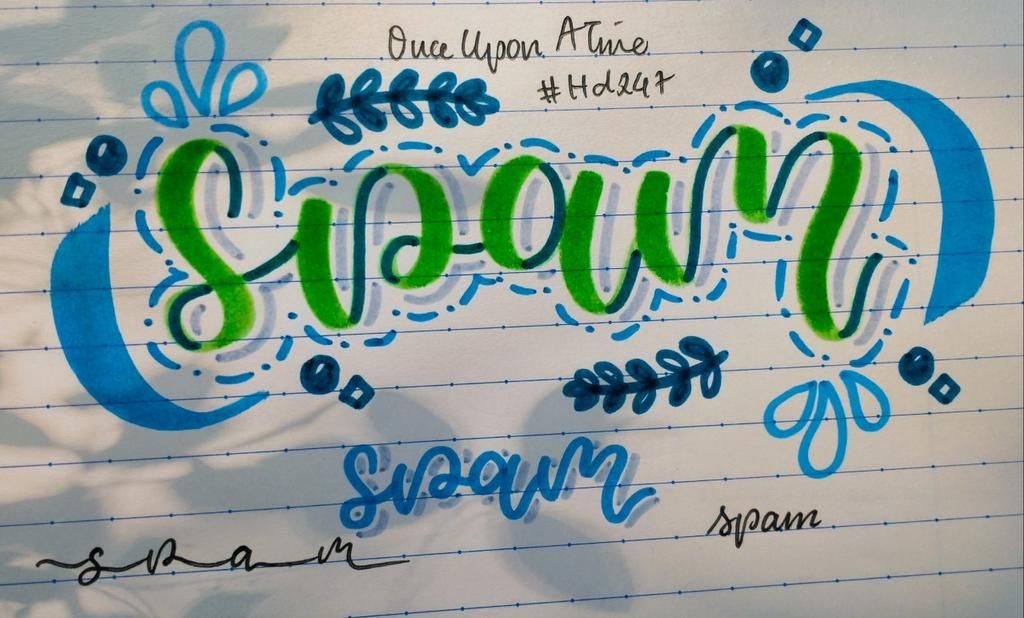 Once Upon A Time
#Hd247
spam
spam
spam
spam